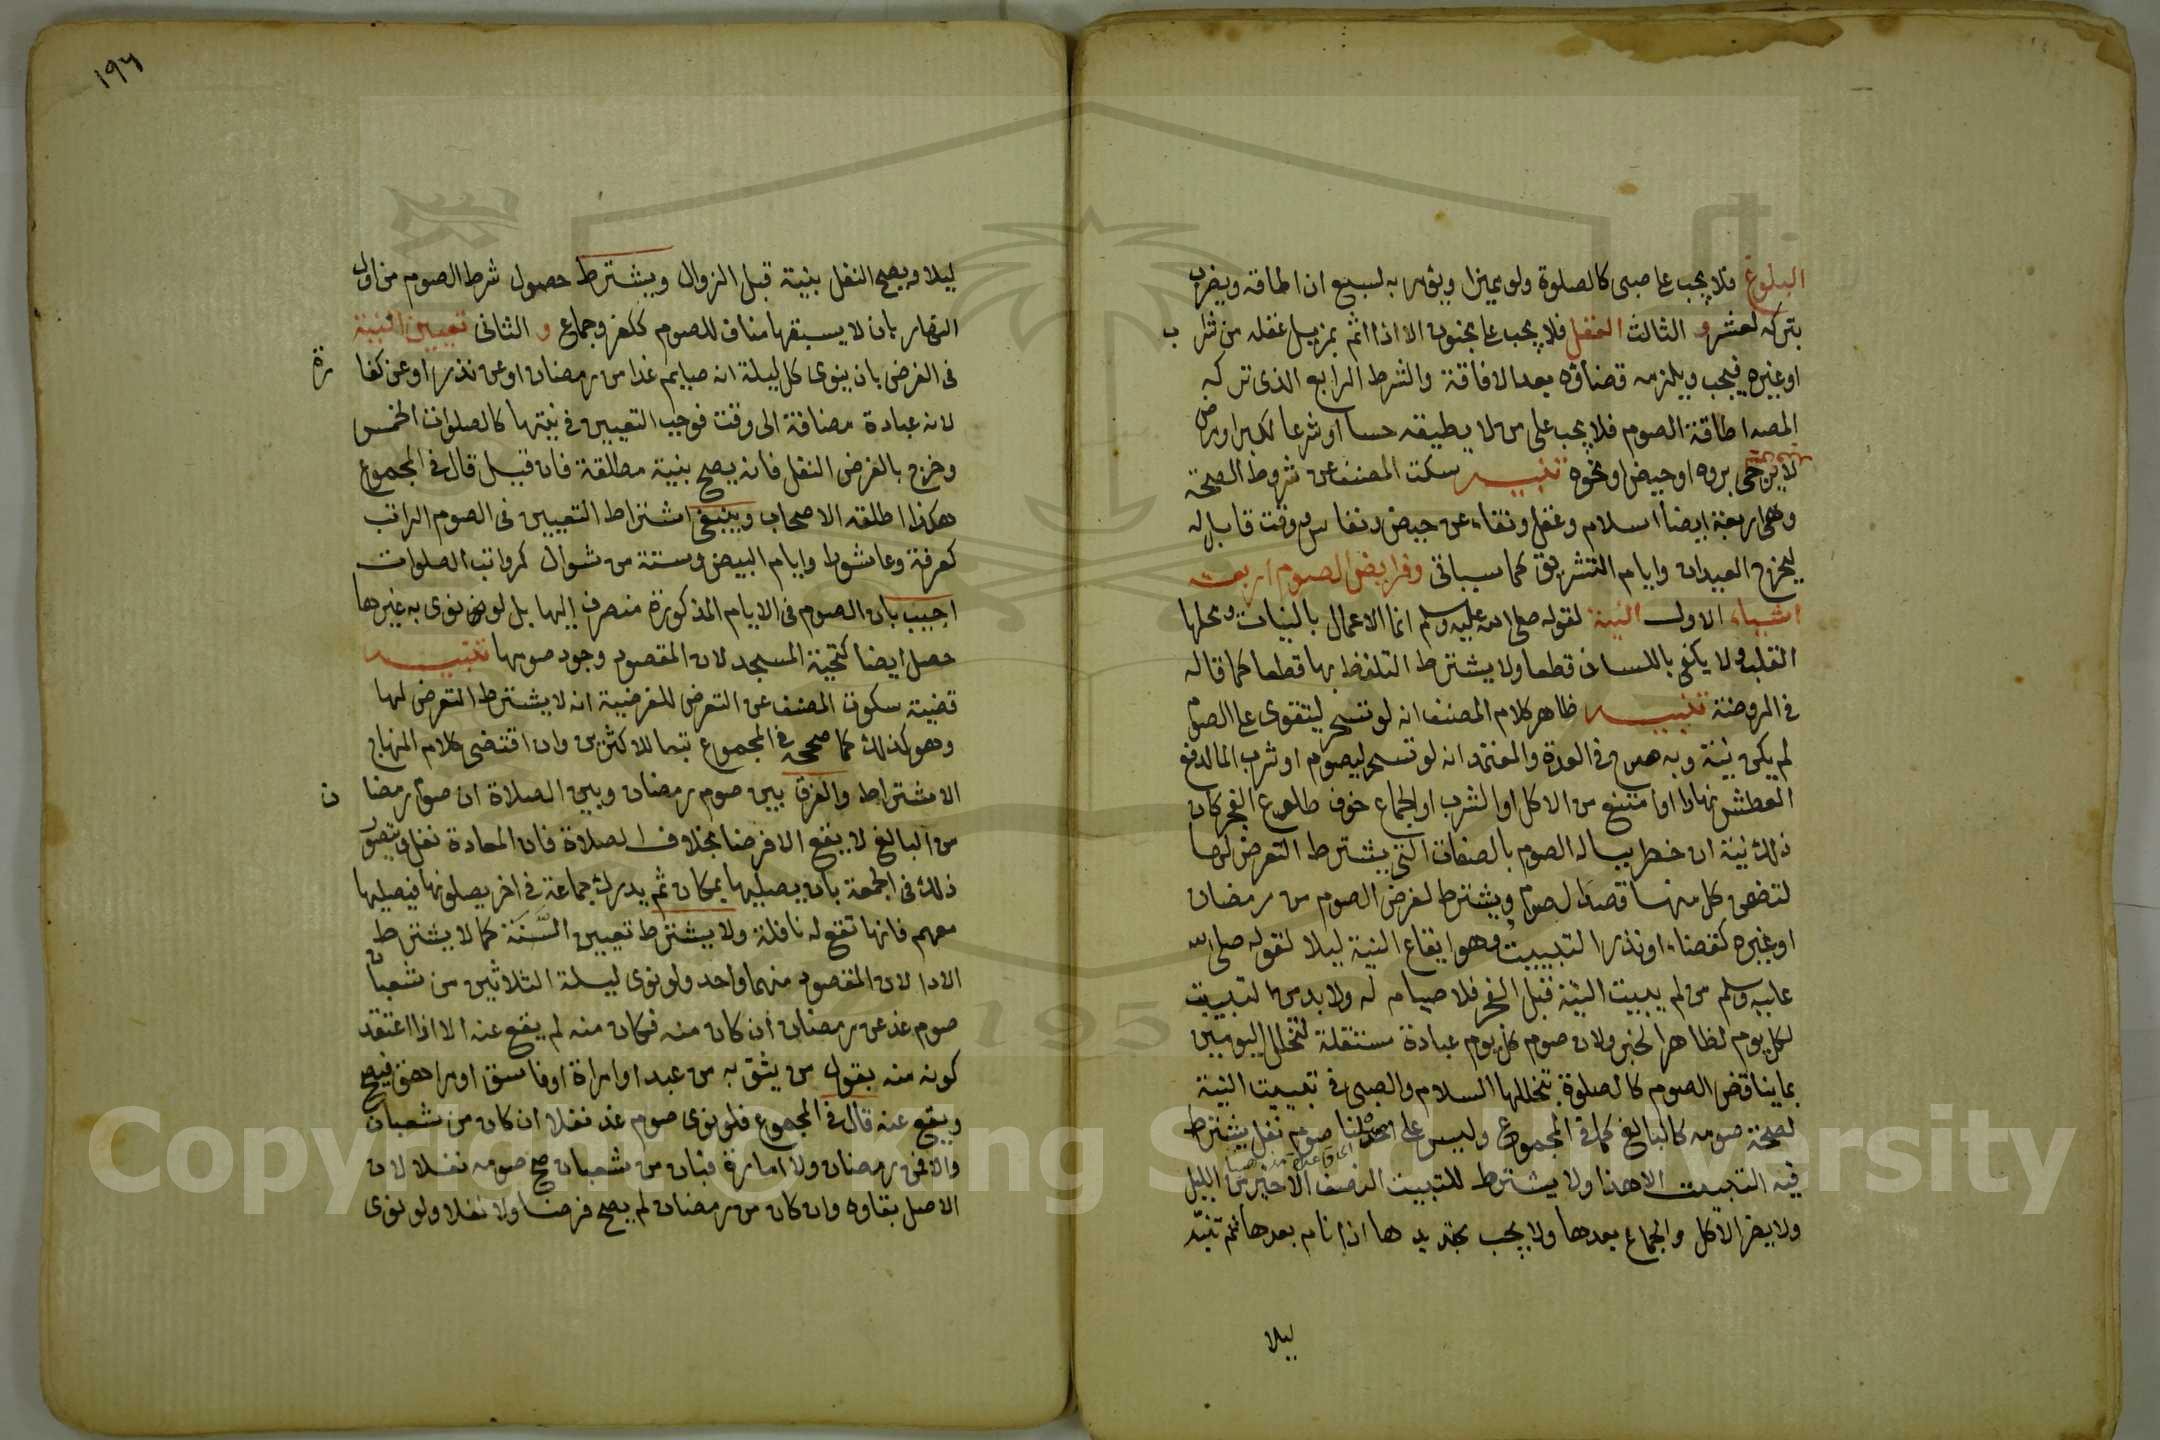 البلوغ فلا يجب على صبي كالصلوة ولو مميزا ويؤمر به لسبع ان اطاقه ويضرب
بتركه لعشر و الثالث العقل فلا يجب على مجنون الا اذا اثم بمزيل عقله من شراب
او غيره فيجب ويلزمه قضاؤه بعد الافاقة والشرط الرابع الذي تركه
المصه اطاقة الصوم فلا يجب على من لا يطيقه حسا او شرعا لكبر او مرض
لا يرجى بروه او حيض او نحوه تنبيه سكت المصنف عن شروط الصحة
وهي اربعة ايضا اسلام وعقل ونقاء عن حيض ونفاس ووقت قابل له
ليخرج العيدان وايام التشريق كما سياتي وفرايض الصوم اربعة
اشياء الاول النية لقوله صلى الله عليه وسلم انما الاعمال بالنيات ومحلها
القلب ولا يكفي باللسان قطعا ولا يشترط التلفظ بها قطعا كما قاله
في الروضة تنبيه ظاهر كلام المصنف انه لو تسحر ليتقوى على الصوم
لم يكن نية وبه صرح في العدة والمعتمد انه لو تسحر ليصوم او شرب الما لدفع
العطش نهارا او امتنع من الاكل او الشرب او الجماع خوف طلوع الفجر كان
ذلك نية ان خطر بباله الصوم بالصفات التي يشترط التعرض لها
لتضمن كل منها قصد الصوم ويشترط لفرض الصوم من رمضان
او غيره كقضاء او نذر التبييت وهو ايقاع النية ليلا لقوله صلى الله
عليه وسلم من لم يبيت النية قبل الفجر فلا صيام له ولا بد من التبييت
لكل يوم لظاهر الخبر ولان صوم كل يوم عبادة مستقلة لتخلل اليومين
بما يناقض الصوم كالصلوة يتخللها السلام والصبي في تبييت النية
لصحة صومه كالبالغ كما في المجموع وليس على اصلنا صوم نفل يشترط
فيه التبييت الا هذا ولا يشترط للتبييت النصف الاخير من الليل
ولا يضر الاكل والجماع بعدها ولا يجب تجديدها اذا نام بعدها ثم تنبه
ليلا
١٩٦
ليلا ويصح النفل بنية قبل الزوال ويشترط حصول شرط الصوم من اول
النهار بان لا يسبقها مناف للصوم ككفر وجماع و الثاني تعيين النية
في الفرض بان ينوي كل ليلة انه صايم غدا من رمضان او عن نذر او عن كفارة
لانه عبادة مضافة الى وقت فوجب التعيين في نيتها كالصلوات الخمس
وخرج بالفرض النفل فانه يصح بنية مطلقة فان قيل قال في المجموع
هكذا اطلقه الاصحاب وينبغي اشتراط التعيين في الصوم الراتب
كعرفة وعاشورا وايام البيض وستة من شوال كرواتب الصلوات
اجيب بان الصوم في الايام المذكورة منصرف إليها بل لو نوى به غيرها
حصل ايضا كتحية المسجد لان المقصود وجود صومها تنبيه
قضية سكوت المصنف عن التعرض للفرضية انه لا يشترط التعرض لها
وهو كذلك كما صححه في المجموع تبعا للاكثرين وان اقتضى كلام المنهاج
الاشتراط والفرق بين صوم رمضان وبين الصلاة ان صوم رمضان
من البالغ لا يقع الا فرضا بخلاف الصلاة فان المعادة نفل ويتصور
ذلك في الجمعة بان يصليها بمكان ثم يدرك جماعة في اخر يصلونها فيصليها
معهم فانها تقع له نافلة ولا يشترط تعيين السَّنَة كما لا يشترط
الادا لان المقصود منهما واحد ولو نوى ليلة الثلاثين من شعبان
صوم غد عن رمضان ان كان منه فكان منه لم يقع عنه الا اذا اعتقد
كونه منه بقول من يثق به من عبد او امراة او فاسق او مراهق فيصح
ويقع عنه قال في المجموع فلو نوى صوم غد نفلا ان كان من شعبان
والا فمن رمضان ولا امارة فبان من شعبان صح صومه نفلا لان
الاصل بقاوه وان كان من رمضان لم يصح فرضا ولا نفلا ولو نوى
Copyright © King Saud University
195